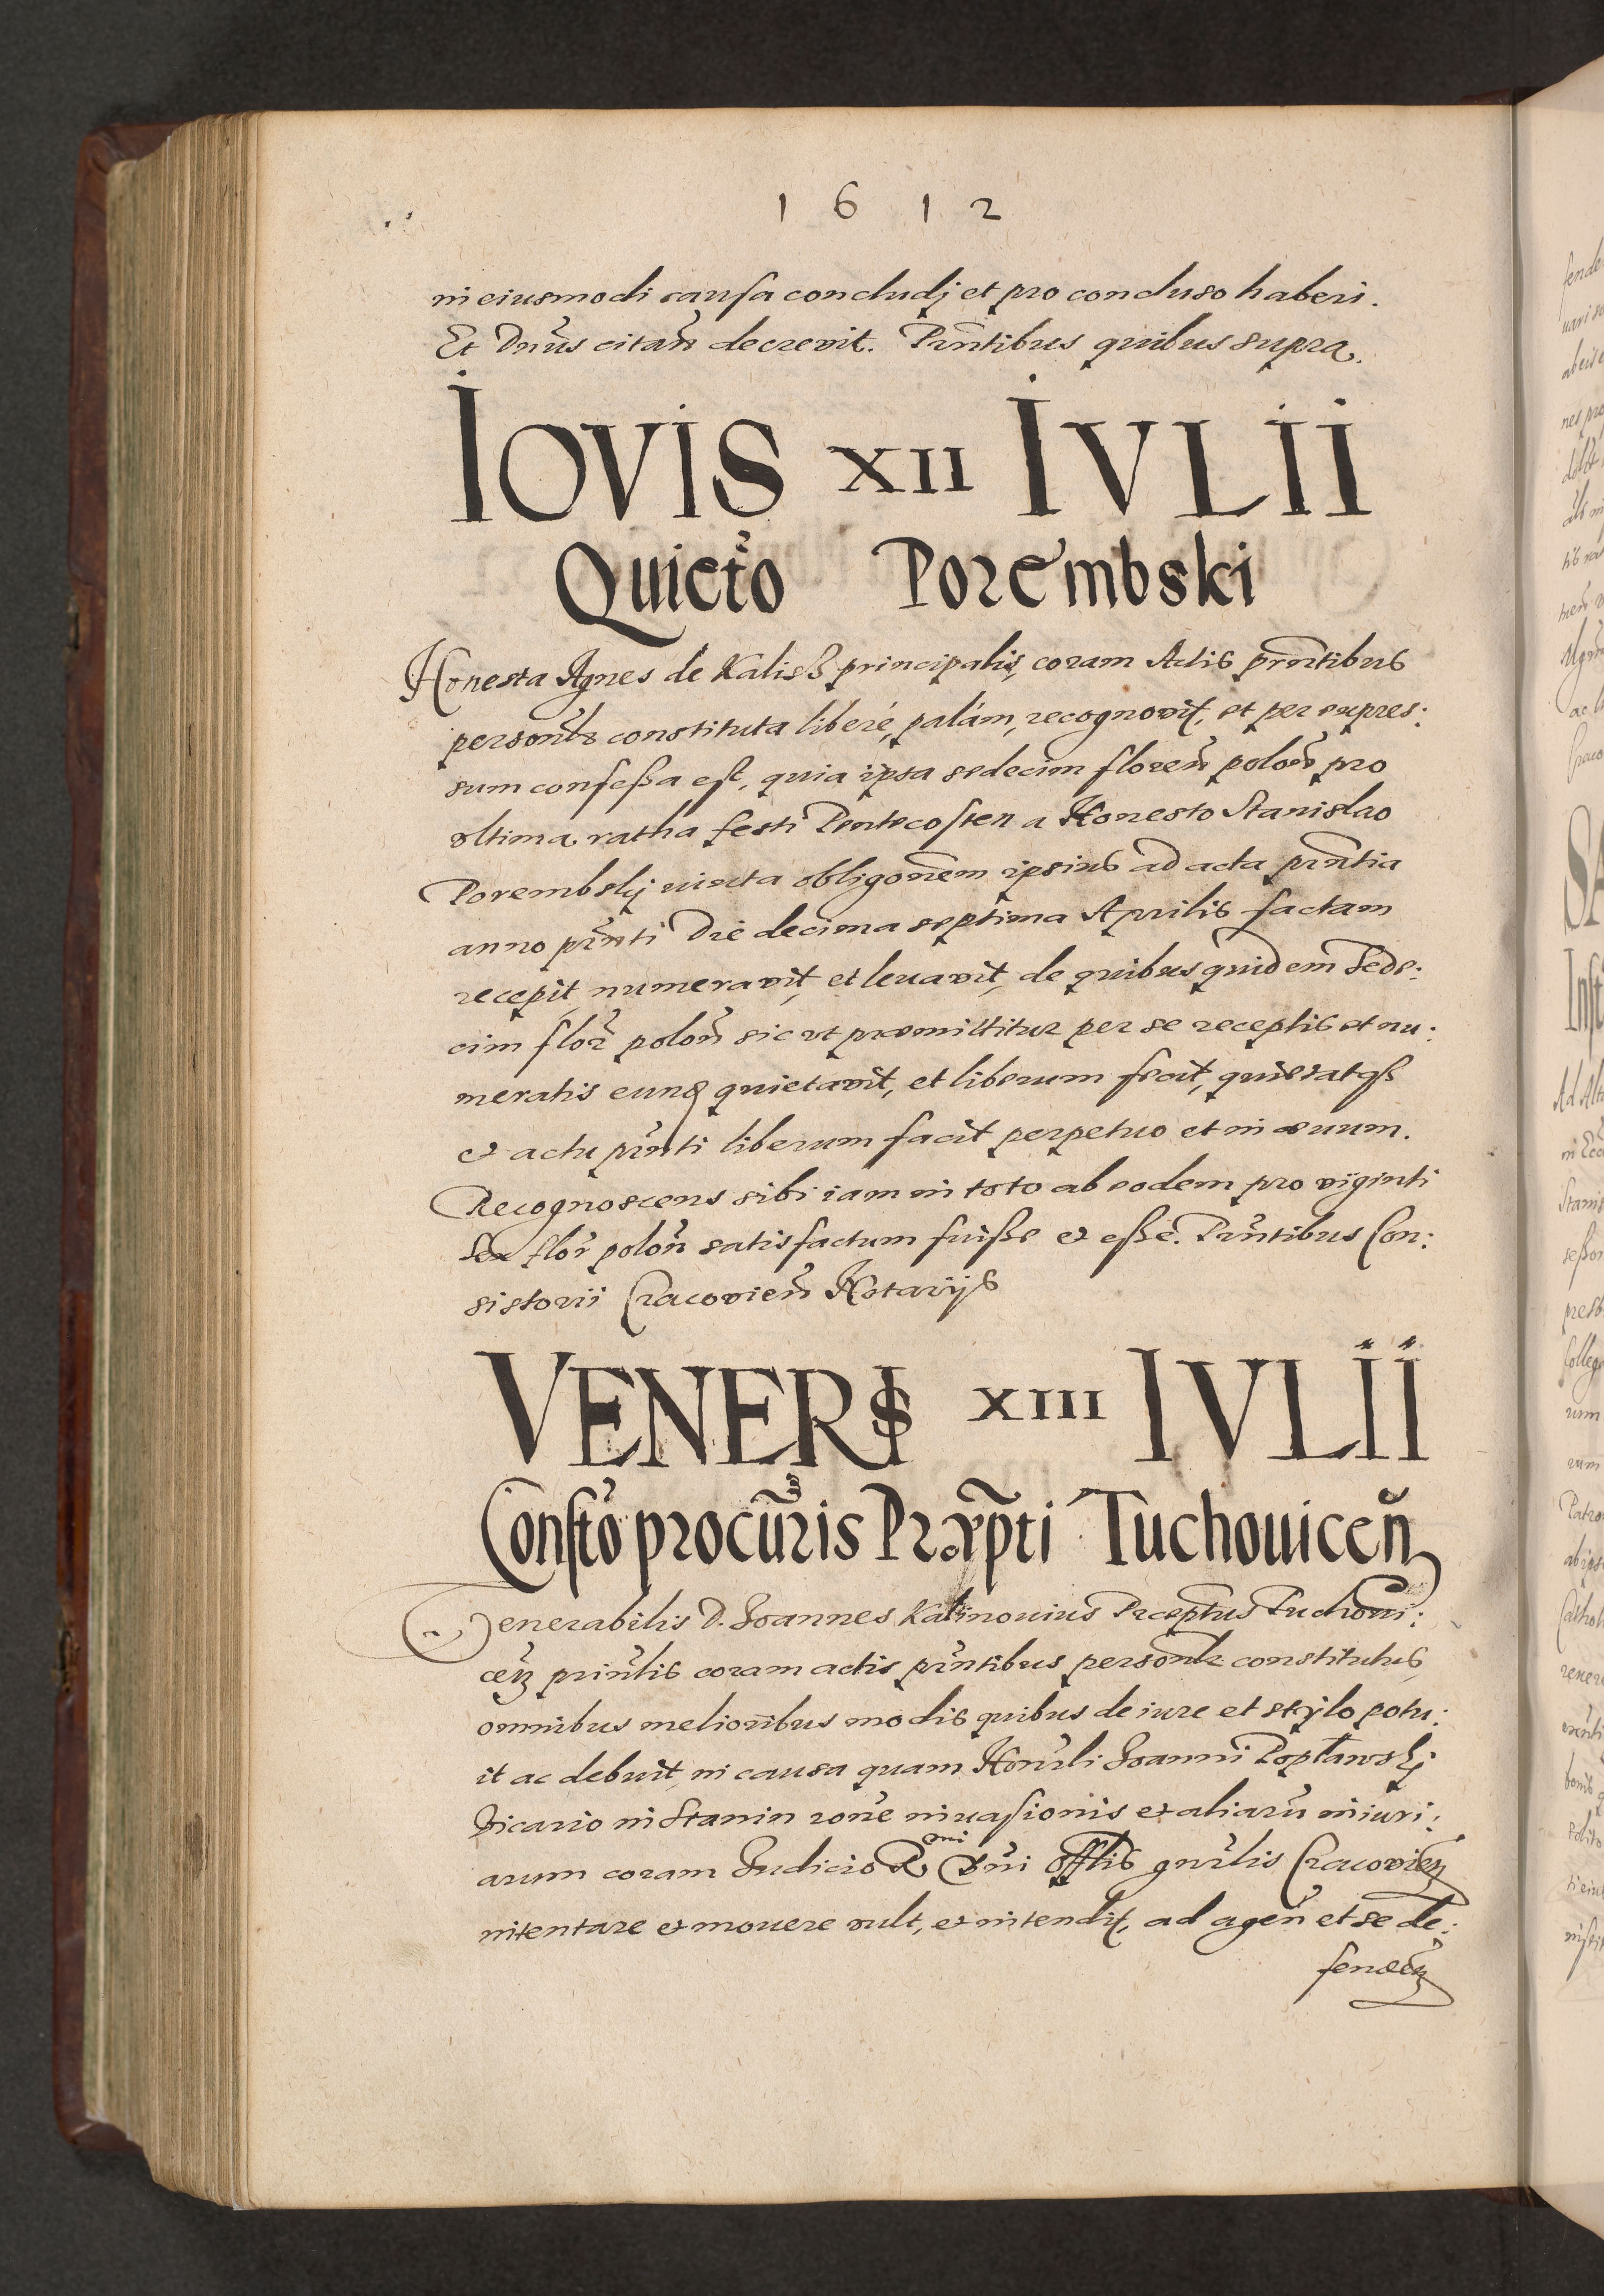 1612
in eiusmodi causa concludj et pro concluso haberi.
Et Dnūs citañ decrevit. Pñtibus quibus supra.
IOVIS XII IVLII
Quictō Porembski
Honesta Agnes de Kalisß principalis, coram Actis pñtibus
personłr constituta liberè, palàm, recognovit, et per expres:
sum confeßa est, quia ipsa sedecim floreñ poloñ pro
vltima ratha festi Pentecosten a Honesto Stanislao
Porembskj iuxta obligoñem ipsius ad acta pñtia
anno pñti Die decima septima Aprilis factam
recepit, numeravit, et levavit, de quibus quidem Sede:
cim flor̃ poloñ sic vt præmittitur per se receptis et nu:
meratis eund quietavit, et liberum fecit, quietatqß
et actu pñti liberum facit perpetuo et in ævum.
Recognoscens sibi iam in toto ab eodem pro viginti
sex flor̃ poloñ satisfactum fuiße et eße. Pñtibus Con:
sistorii Cracovieñ Notarijs
VENERIS XIII IVLII
Constō procūris Præpti Tuchouiceñ
Venerabilis D. Joannes Kalinouius Præptus Tuchoui:
ceñ prinlis coram actis pñtibus personlr constitutus
omnibus melioribus modis quibus de iure et stÿlo potu:
it ac debuit, in causa quam Honrli Joanni Popławskj
Vicario in Stanin rone invasionis et aliarū iniuri:
arum coram Judicio R mi Dni Offlis gnrlis Cracovieñ
intentare et movere vult, et intendit, ad ageñ et se de:
fendeñ